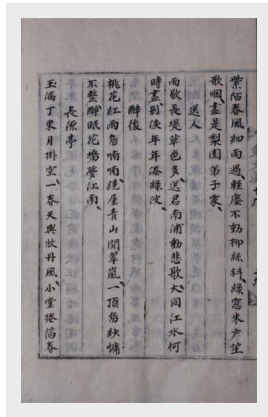 紫陌春風細雨過、輕塵不動柳絲斜、綠窓朱户笙
歌咽盡是梨園弟子家、
送人
雨歇長堤草色多送君南浦動悲歌、大同江水何
時盡、別淚年年添綠波、
醉後
桃花紅雨鳥喃喃繞屋青山間翠嵐、一頂烏紗慵
不整醉眠花塢夢江南、
長源亭
玉漏丁東月掛空、一春天與牧丹風、小堂捲箔春